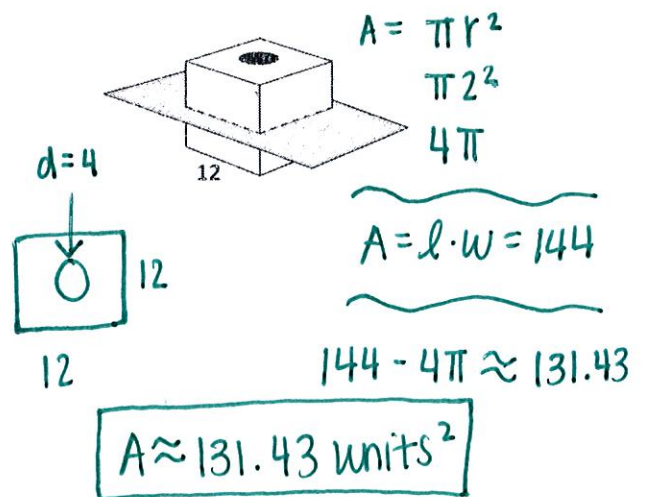 A = πr²
π2²
4π
12
d=4
12
12
A = l·w = 144
144 - 4π ≈ 131.43
A ≈ 131.43 units²